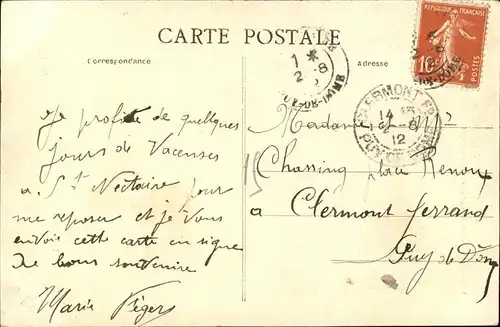 CARTE POSTALE
Correspondance
Adresse
REPUBLIQUE FRANÇAISE
10c
POSTES
1 *
2 -8
PUY-DE-DOME
CLERMONT-FD
14
1 -8
12
PUY DE DOME
Je profite de quelques
jours de Vacances
a St Nectaire pour
me reposer et je Vous
envoie cette carte en signe
de bons souvenirs
Marie
Madame
Chassing place Renoux
a Clermont ferrand
Puy de Dôme